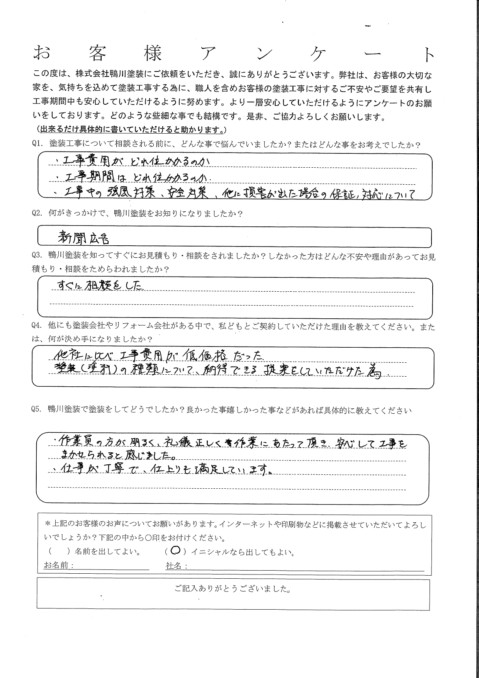 お客様アンケート
この度は、株式会社鴨川塗装にご依頼をいただき、誠にありがとうございます。弊社は、お客様の大切な
家を、気持ちを込めて塗装工事する為に、職人を含めお客様の塗装工事に対するご不安やご要望を共有し
工事期間中も安心していただけるように努めます。より一層安心していただけるようにアンケートのお願
いをしております。どのような些細な事でも結構です。是非、ご協力よろしくお願いします。
(出来るだけ具体的に書いていただけると助かります。)
Q1. 塗装工事について相談される前に、どんな事で悩んでいましたか?またはどんな事をお考えでしたか?
・工事費用がどれ位かかるのか
・工事期間はどれ位かかるのか
・工事中の強風対策、安全対策、他に損害が出た場合の保証、対応について
Q2. 何がきっかけで、鴨川塗装をお知りになりましたか?
新聞広告
Q3. 鴨川塗装を知ってすぐにお見積もり・相談をされましたか?しなかった方はどんな不安や理由があってお見
積もり・相談をためらわれましたか?
すぐに相談をした
Q4. 他にも塗装会社やリフォーム会社がある中で、私どもとご契約していただけた理由を教えてください。また
は、何が決め手になりましたか?
他社に比べ工事費用が低価格だった
(塗料)の種類について、納得できる提案をしていただけた為
Q5. 鴨川塗装で塗装をしてどうでしたか?良かった事嬉しかった事などがあれば具体的に教えてください
・作業員の方が明るく、礼儀正しく作業にあたって頂き、安心して工事を
まかせられると感じました。
・仕事が丁寧で、仕上りも満足しています。
＊上記のお客様のお声についてお願いがあります。インターネットや印刷物などに掲載させていただいてよろし
いでしょうか?下記の中から○印をお付けください。
( )名前を出してよい。 (○)イニシャルなら出してもよい。
お名前: 社名:
ご記入ありがとうございました。